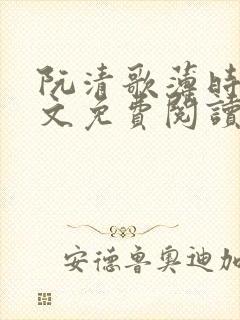 阮清歌薄時
文免費閱讀
安德魯奧迪加